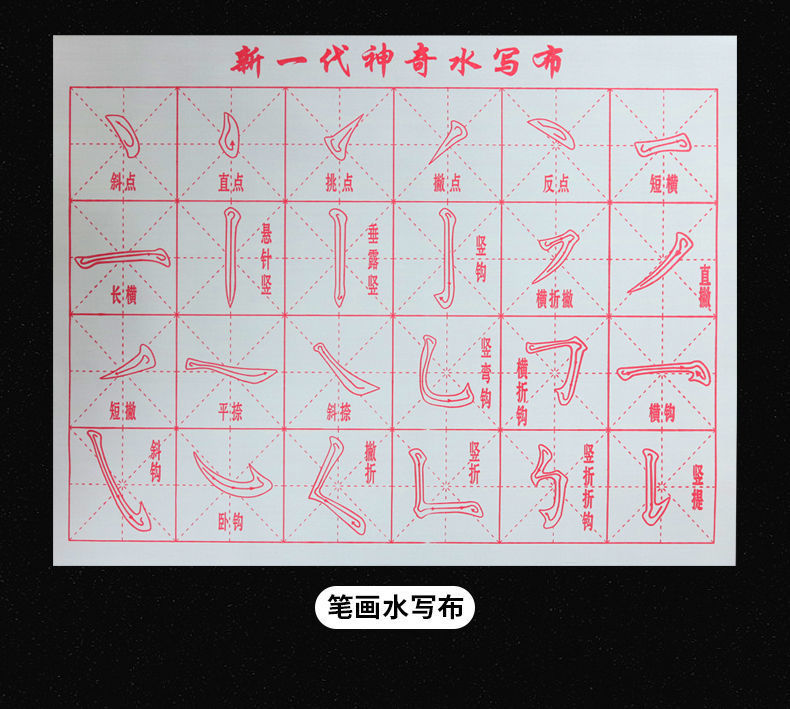 新一代神奇水写布
斜点
直点
挑点
撇点
反点
短横
长横
悬针竖
垂露竖
竖钩
横折撇
直撇
短撇
平捺
斜捺
竖弯钩
横折钩
横钩
斜钩
卧钩
撇折
竖折
竖折折钩
竖提
笔画水写布